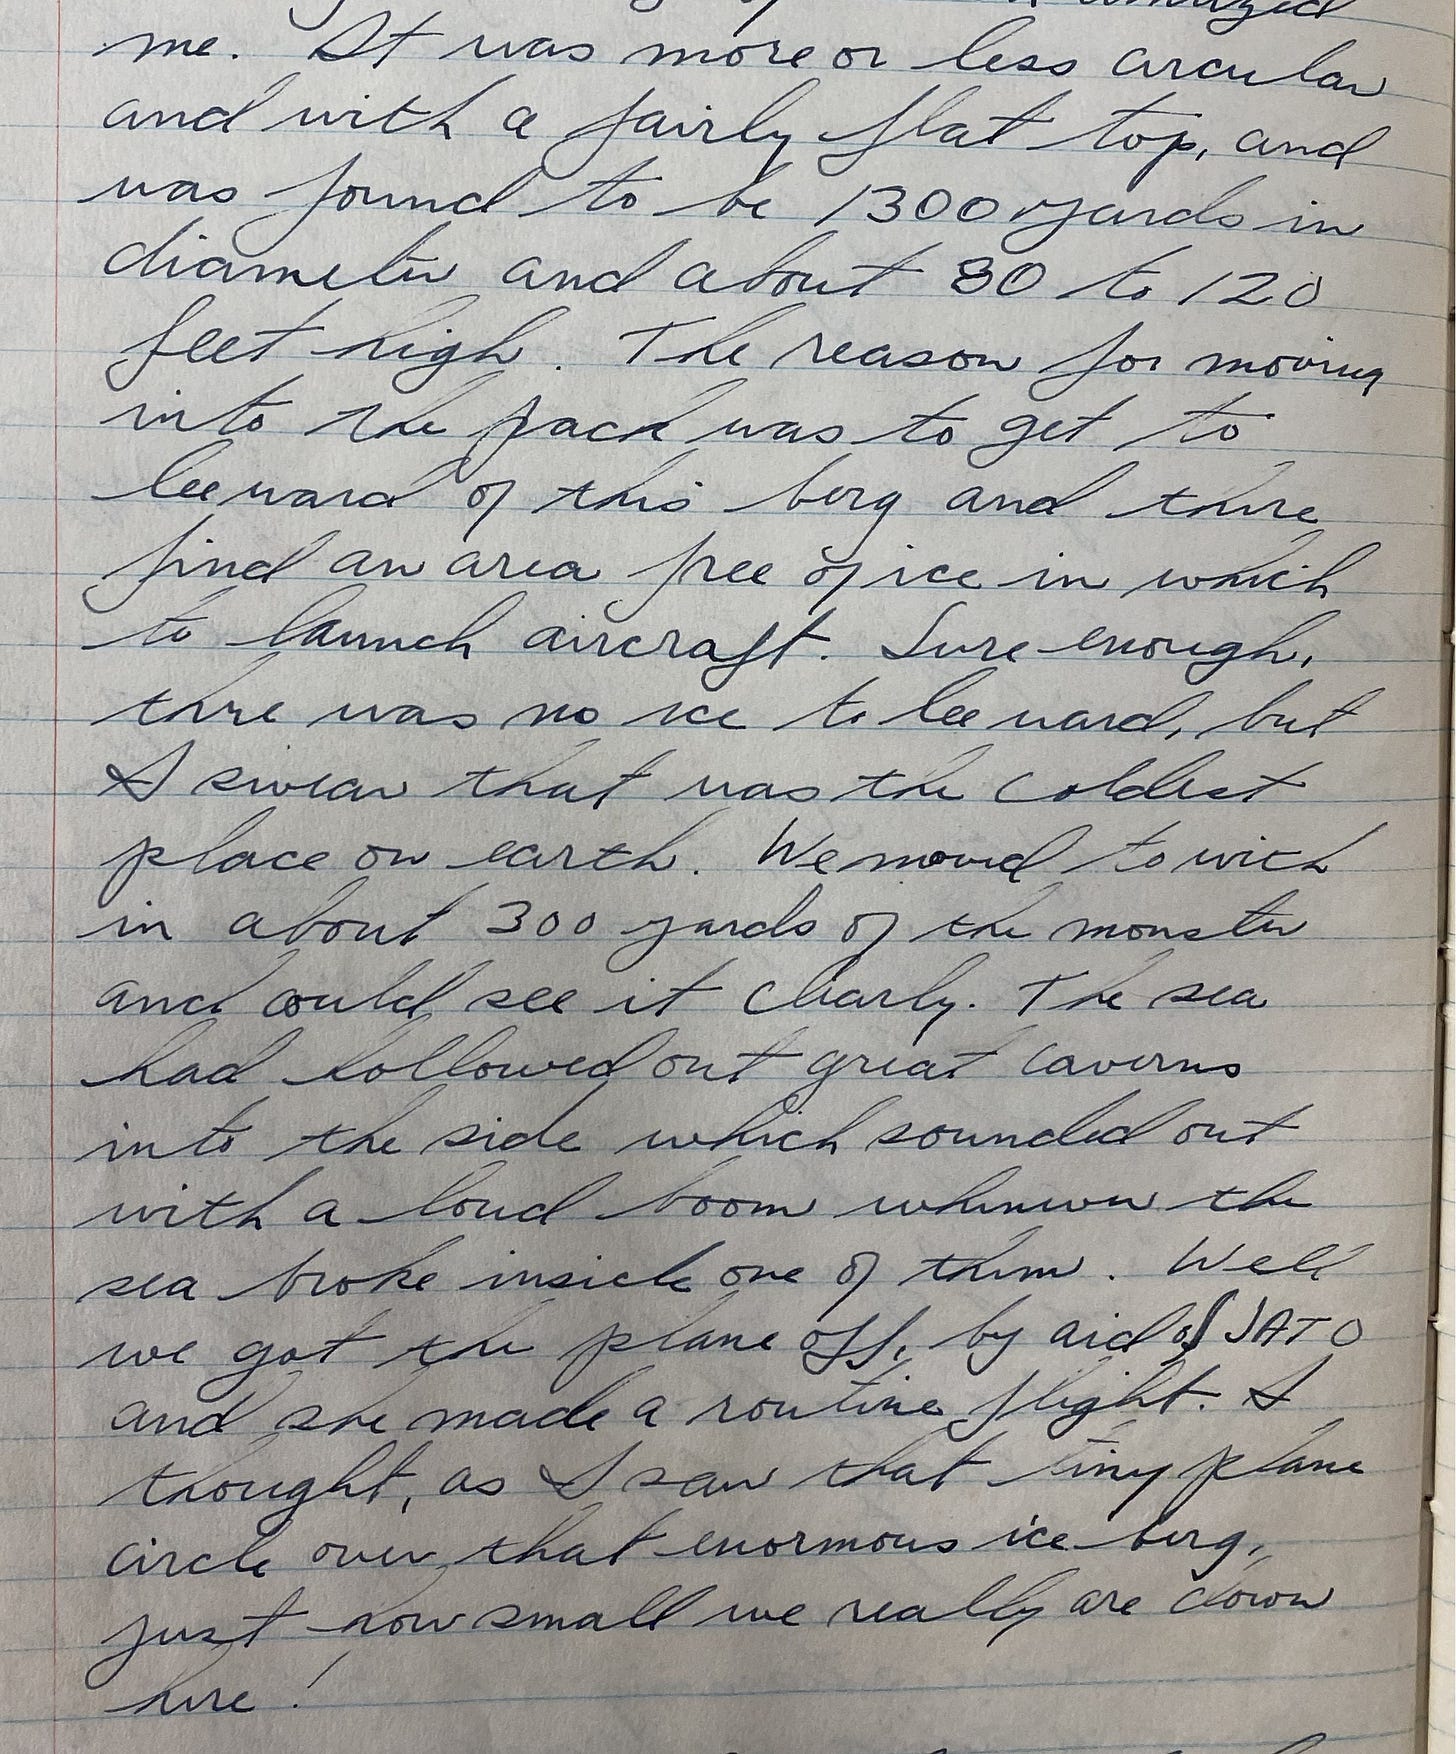 amazed
me. It was more or less circular
and with a fairly flat top, and
was found to be 1300 yards in
diameter and about 80 to 120
feet high. The reason for moving
into the pack was to get to
leeward of this berg and there
find an area free of ice in which
to launch aircraft. Sure enough,
there was no ice to leeward, but
I swear that was the coldest
place on earth. We moved to with
in about 300 yards of the monster
and could see it clearly. The sea
had hollowed out great caverns
into the side which sounded out
with a loud boom whenever the
sea broke inside one of them. Well
we got the plane off, by aid of JATO
and she made a routine flight. I
thought, as I saw that tiny plane
circle over that enormous ice berg,
just how small we really are down
here!